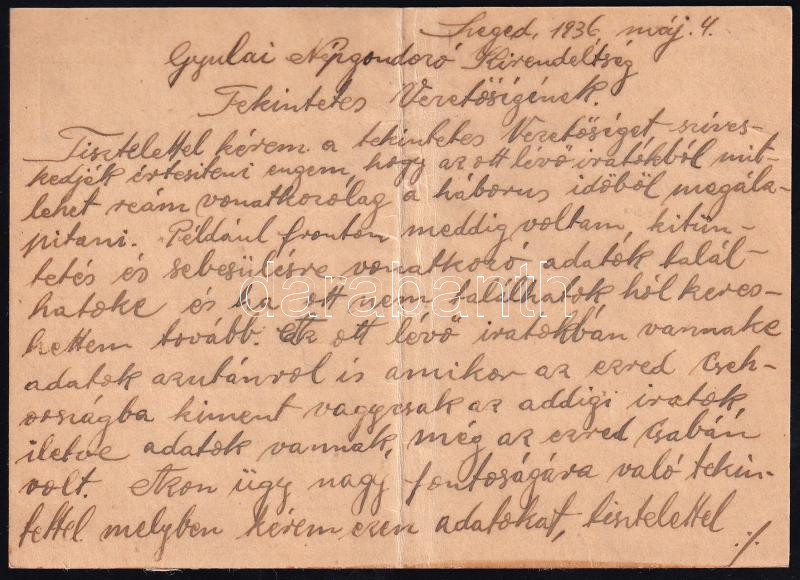 Szeged, 1936, máj. 4.
Gyulai Népgondozó Kirendeltség
Tekintetes Vezetőségének.
Tisztelettel kérem a tekintetes Vezetőséget szíves-
kedjék értesíteni engem, hogy az ott lévő iratokból mit
lehet reám vonatkozólag a háborus időből megála-
pitani. Például fronton meddig voltam, kitün-
tetés és sebesülésre vonatkozó adatok talál-
hatoke és ha ott nem találhatok hól keres-
hettem tovább. Az ott lévő iratokban vannake
adatok azutánról is amikor az ezred Cseh-
országba kiment vagy csak az addigi iratok
illetve adatok vannak, még az ezred Csabán
volt. Azon ügy nagy fontoságára való tekin-
tettel melyben kérem ezen adatokat, tisztelettel
./.
darabanth